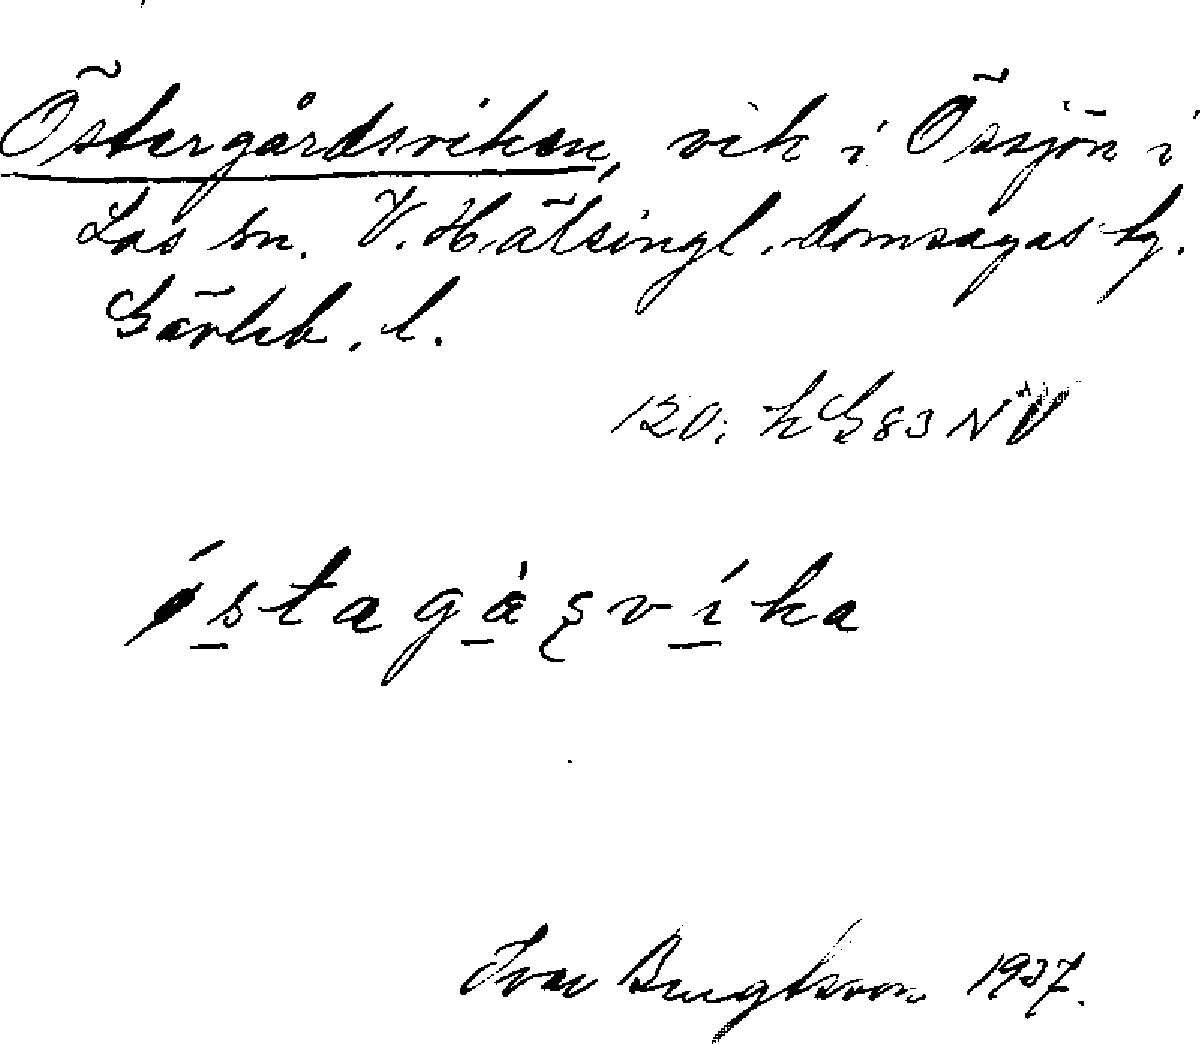 Östergårdsviken, vik i Össjön i
Los sn. V. Hälsingl. domsagas tg.
Gävleb. l.
120: h G 83 NV
østagåsvíka
Ivar Bengtsson 1937.